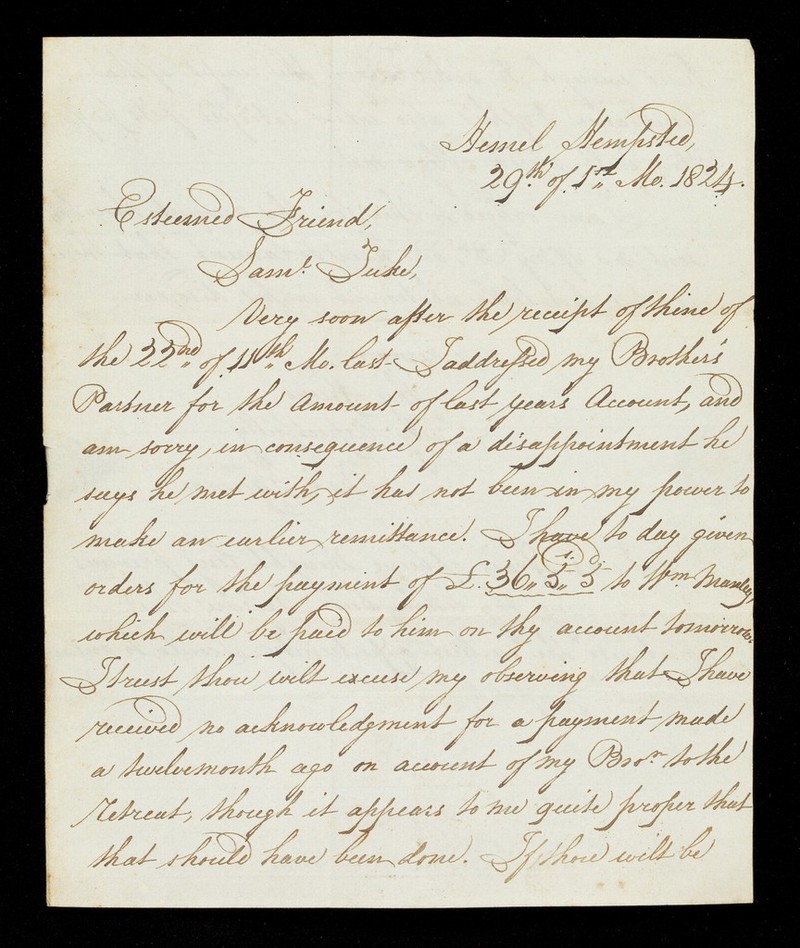 Hemel Hempsted,
29.th of 1st Mo. 1824.
Esteemed Friend,
Saml. Tuke,
Very soon after the receipt of thine of
the 22nd of 11th Mo. last I addressed my Brother's
Partner for the Amount of last years Account, and
am sorry, in consequence of a disappointment he
says he met with, it has not been in my power to
make an earlier remittance. I have to day given
orders for the payment of £.36,, 5,, 5 to Wm Manley,
which will be paid to him on thy account tomorrow.
I trust thou wilt excuse my observing that I have
received no acknowledgment for a payment made
a twelvemonth ago on account of my Bror. to the
Retreat, though it appears to me quite proper that
that should have been done. If thou wilt be